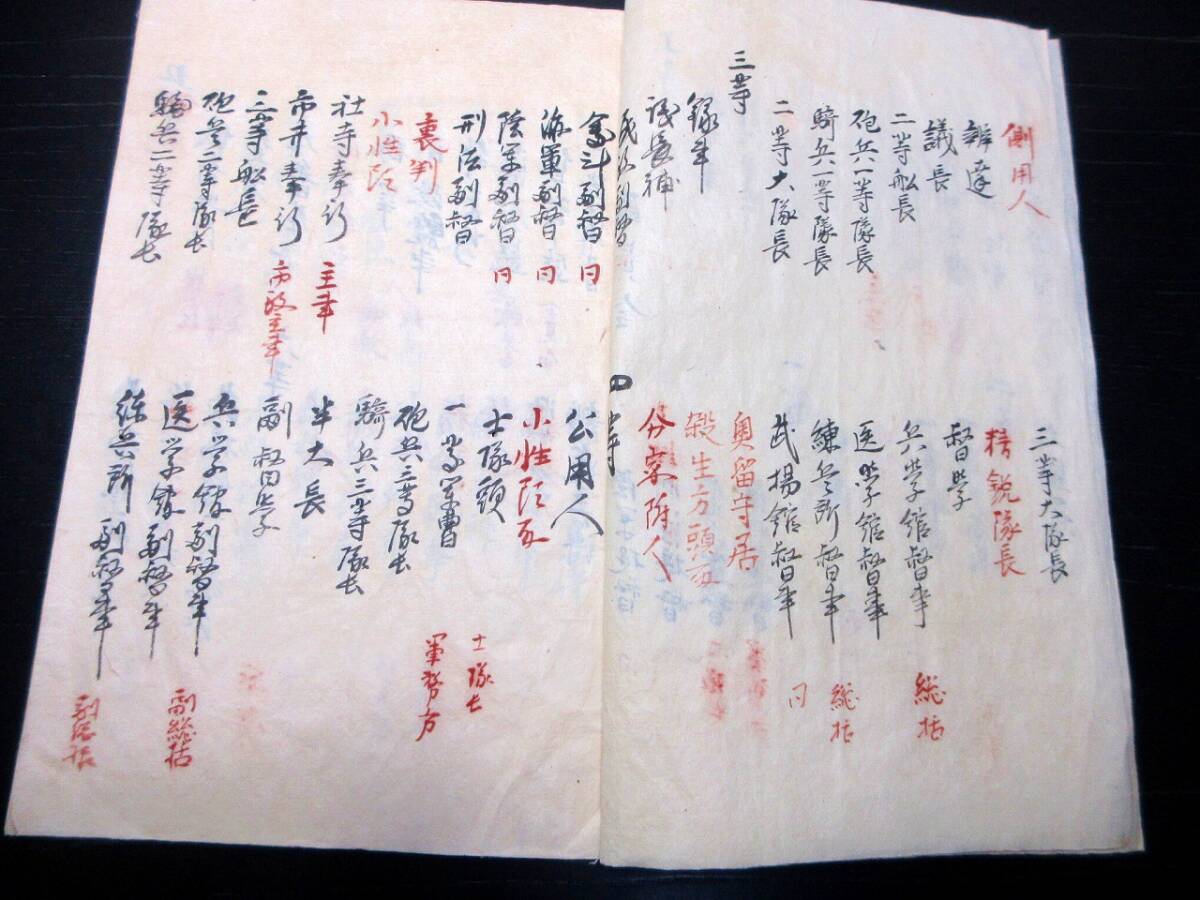 側用人
辨達
議長
二等舩長
砲兵一等隊長
騎兵一等隊長
二等大隊長
三等
録事
議長補
副督
会计副督 曰
海軍副督 曰
陸軍副督 曰
刑法副督
裏判
小性頭
社寺奉行 主事
市井奉行 市政主事
三等舩長
砲兵二等隊長
騎兵二等隊長
三等大隊長
精鋭隊長
督学
兵学館督事 総括
医学館督事 総括
練兵所督事 曰
武揚館督事
奥留守居
殺生方頭取
分家附人
四等
公用人
小性頭取
士隊頭 士隊長
一等軍曹 軍務方
砲兵三等隊長
騎兵三等隊長
半大長
副督学
兵学館副督事
医学館副督事 副総括
練兵所副督事 副総括